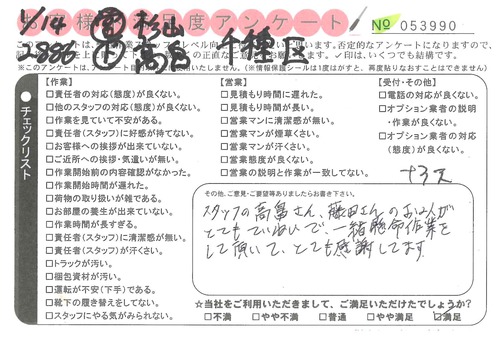 お客様満足度アンケート
1/14 営 杉山
2886 上 高畠 千種区
№ 053990
チェックリスト
【作業】
□責任者の対応(態度)が良くない。
□他のスタッフの対応(態度)が良くない。
□作業を見ていて不安がある。
□責任者(スタッフ)に好感が持てない。
□お客様への挨拶が出来ていない。
□ご近所への挨拶・気遣いが無い。
□作業開始前の内容確認がなかった。
□作業開始時間が遅れた。
□荷物の取り扱いが雑である。
□お部屋の養生が出来ていない。
□作業時間が長すぎる。
□責任者(スタッフ)に清潔感が無い。
□責任者(スタッフ)が汗くさい。
□トラックが汚い。
□梱包資材が汚い。
□運転が不安(下手)である。
□靴下の履き替えをしてない。
□スタッフにやる気がみられない。
【営業】
□見積もり時間に遅れた。
□見積もり時間が長い。
□営業マンに清潔感が無い。
□営業マンが煙草くさい。
□営業マンが汗くさい。
□営業態度が良くない。
□営業の説明と作業が一致してない。
【受付・その他】
□電話の対応が良くない。
□オプション業者の説明・作業が良くない。
□オプション業者の対応(態度)が良くない。
その他、ご意見・ご要望等ありましたらお書き下さい。
スタッフの高畠さん、藤田さんのお二人が
とてもていねいで、一緒懸命作業を
して頂いて、とても感謝してます。
☆当社をご利用いただきまして、ご満足いただけたでしょうか?
□不満 □やや不満 □普通 □やや満足 □満足